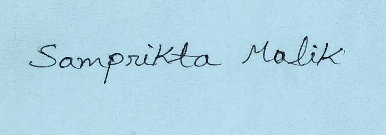 Samprikta Malik